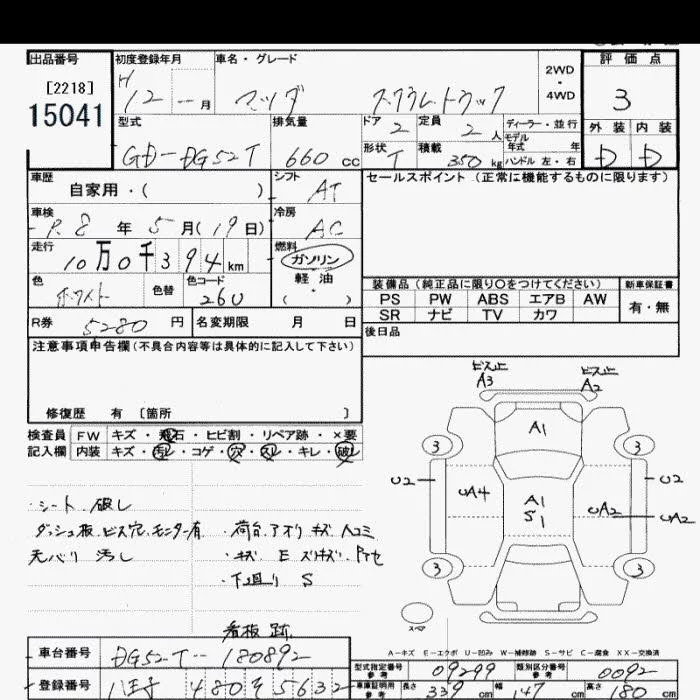 出品番号 初度登録年月 車名・グレード 評価点
[2218] H 2WD
15041 12 月 マツダ スクラムトラック 4WD 3
型式 排気量 ドア 2 定員 2人 ディーラー・並行 外装 内装
モデル年式 年
GD-DG52T 660 cc 形状 T 積載 350kg ハンドル 左・右 D D
車歴 シフト セールスポイント(正常に機能するものに限ります)
自家用・( ) AT
車検 冷房
R.8年5月(19日) AC
走行 燃料
10万0千394km ガソリン
色 色替 色コード 軽油 装備品(純正品に限り〇をつけてください) 新車保証書
ホワイト 26U ( ) PS PW ABS エアB AW 有・無
SR ナビ TV カワ
R券 5280円 名変期限 月 日 後日品
注意事項申告欄(不具合内容等は具体的に記入して下さい)
修復歴 有 [箇所 ]
ビス止 ビス止
A3 A2
A1
3 3
U2 UA4 A1 UA2 U2
S1 UA2
3 3
スペア
検査員 FW キズ・飛石・ヒビ割・リペア跡・×要
記入欄 内装 キズ・汚レ・コゲ・穴・スレ・キレ・破レ
・シート 破レ
ダッシュ板、ビス穴、モニター有
天バリ 汚レ
・荷台、アオリ キズ 凹コミ
・キズ E
・下回り S
看板跡
A-キズ E-エクボ U-凹み W-補修跡 S-サビ C-腐食 XX-交換済
車台番号 DG52T-180892 型式指定番号 参考 09299 類別区分番号 参考 0092
登録番号 八王子 480 そ 5632 車庫証明用 参考 長さ 339cm 幅 147cm 高さ 180cm